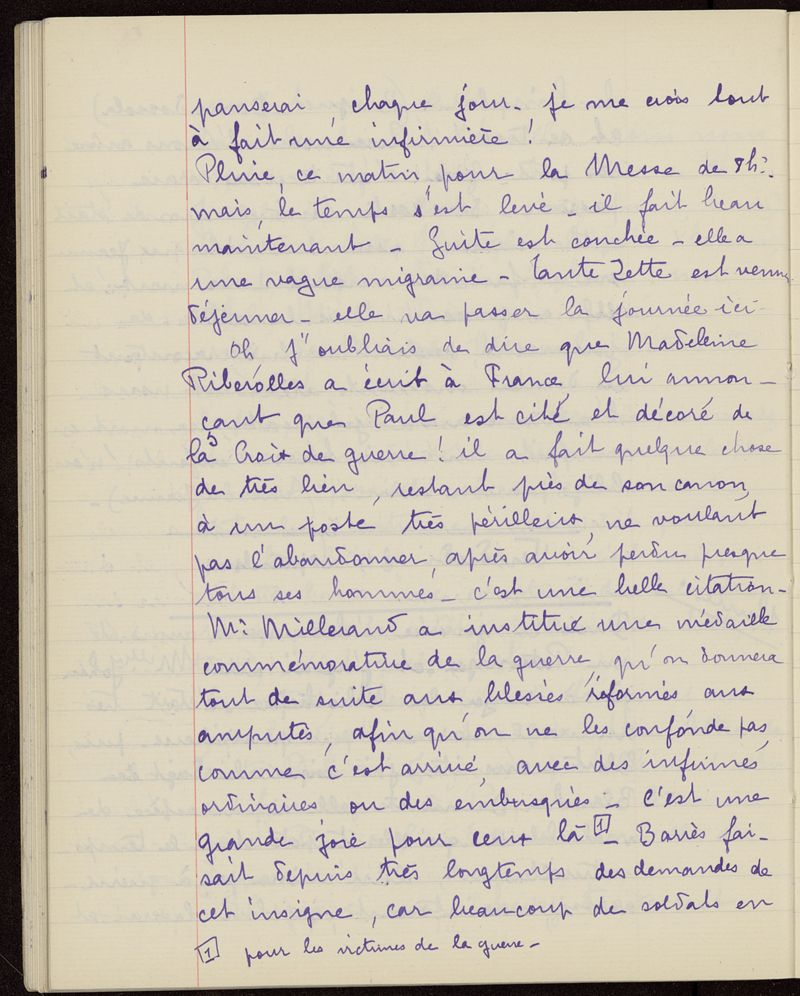 panserai chaque jour. je me crois tout
à fait une infirmière !
Pluie, ce matin, pour la Messe de 8h.
mais, le temps s'est levé - il fait beau
maintenant - Guite est couchée - elle a
une vague migraine - tante Zette est venue
déjeuner - elle va passer la journée ici -
Oh j'oubliais de dire que Madeleine
Riberolles a écrit à France, lui annon-
çant que Paul est cité et décoré de
la Croix de guerre ! il a fait quelque chose
de très bien, restant près de son canon,
à un poste très périlleux, ne voulant
pas l'abandonner, après avoir perdu presque
tous ses hommes - c'est une belle citation -
Mr Millerand a institué une médaille
commémorative de la guerre, qu'on donnera
tout de suite aux blessés réformés aux
amputés, afin qu'on ne les confonde pas,
comme c'est arrivé, avec des infirmes
ordinaires ou des embusqués - c'est une
grande joie pour ceux là [1] - Barrès fai-
sait depuis très longtemps des demandes de
cet insigne, car beaucoup de soldats en
[1] pour les victimes de la guerre -